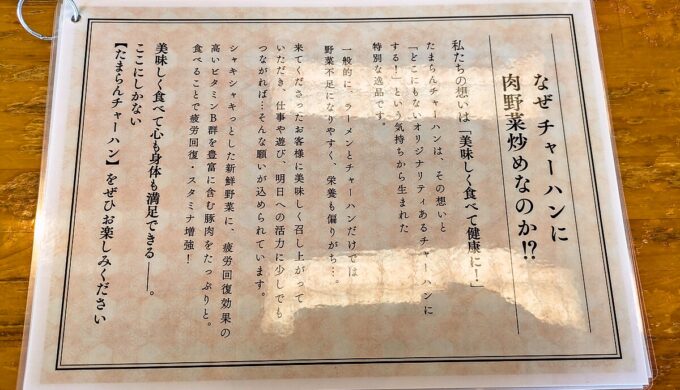 なぜチャーハンに
肉野菜炒めなのか!?
私たちの想いは「美味しく食べて健康に！」
たまらんチャーハンは、その想いと
「どこにもないオリジナリティあるチャーハンに
する！」という気持ちから生まれた
特別な逸品です。
一般的に、ラーメンとチャーハンだけでは
野菜不足になりやすく、栄養も偏りがち…。
来てくださったお客様に美味しく召し上がって
いただき、仕事や遊び、明日への活力に少しでも
つながれば…そんな願いが込められています。
シャキシャキっとした新鮮野菜に、疲労回復効果の
高いビタミンB群を豊富に含む豚肉をたっぷりと。
食べることで疲労回復・スタミナ増強！
美味しく食べて心も身体も満足できる――。
ここにしかない
【たまらんチャーハン】をぜひお楽しみください